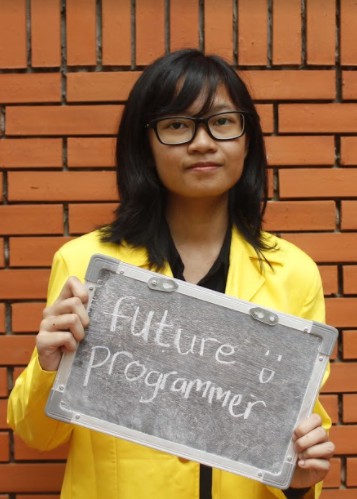 future :)
programmer